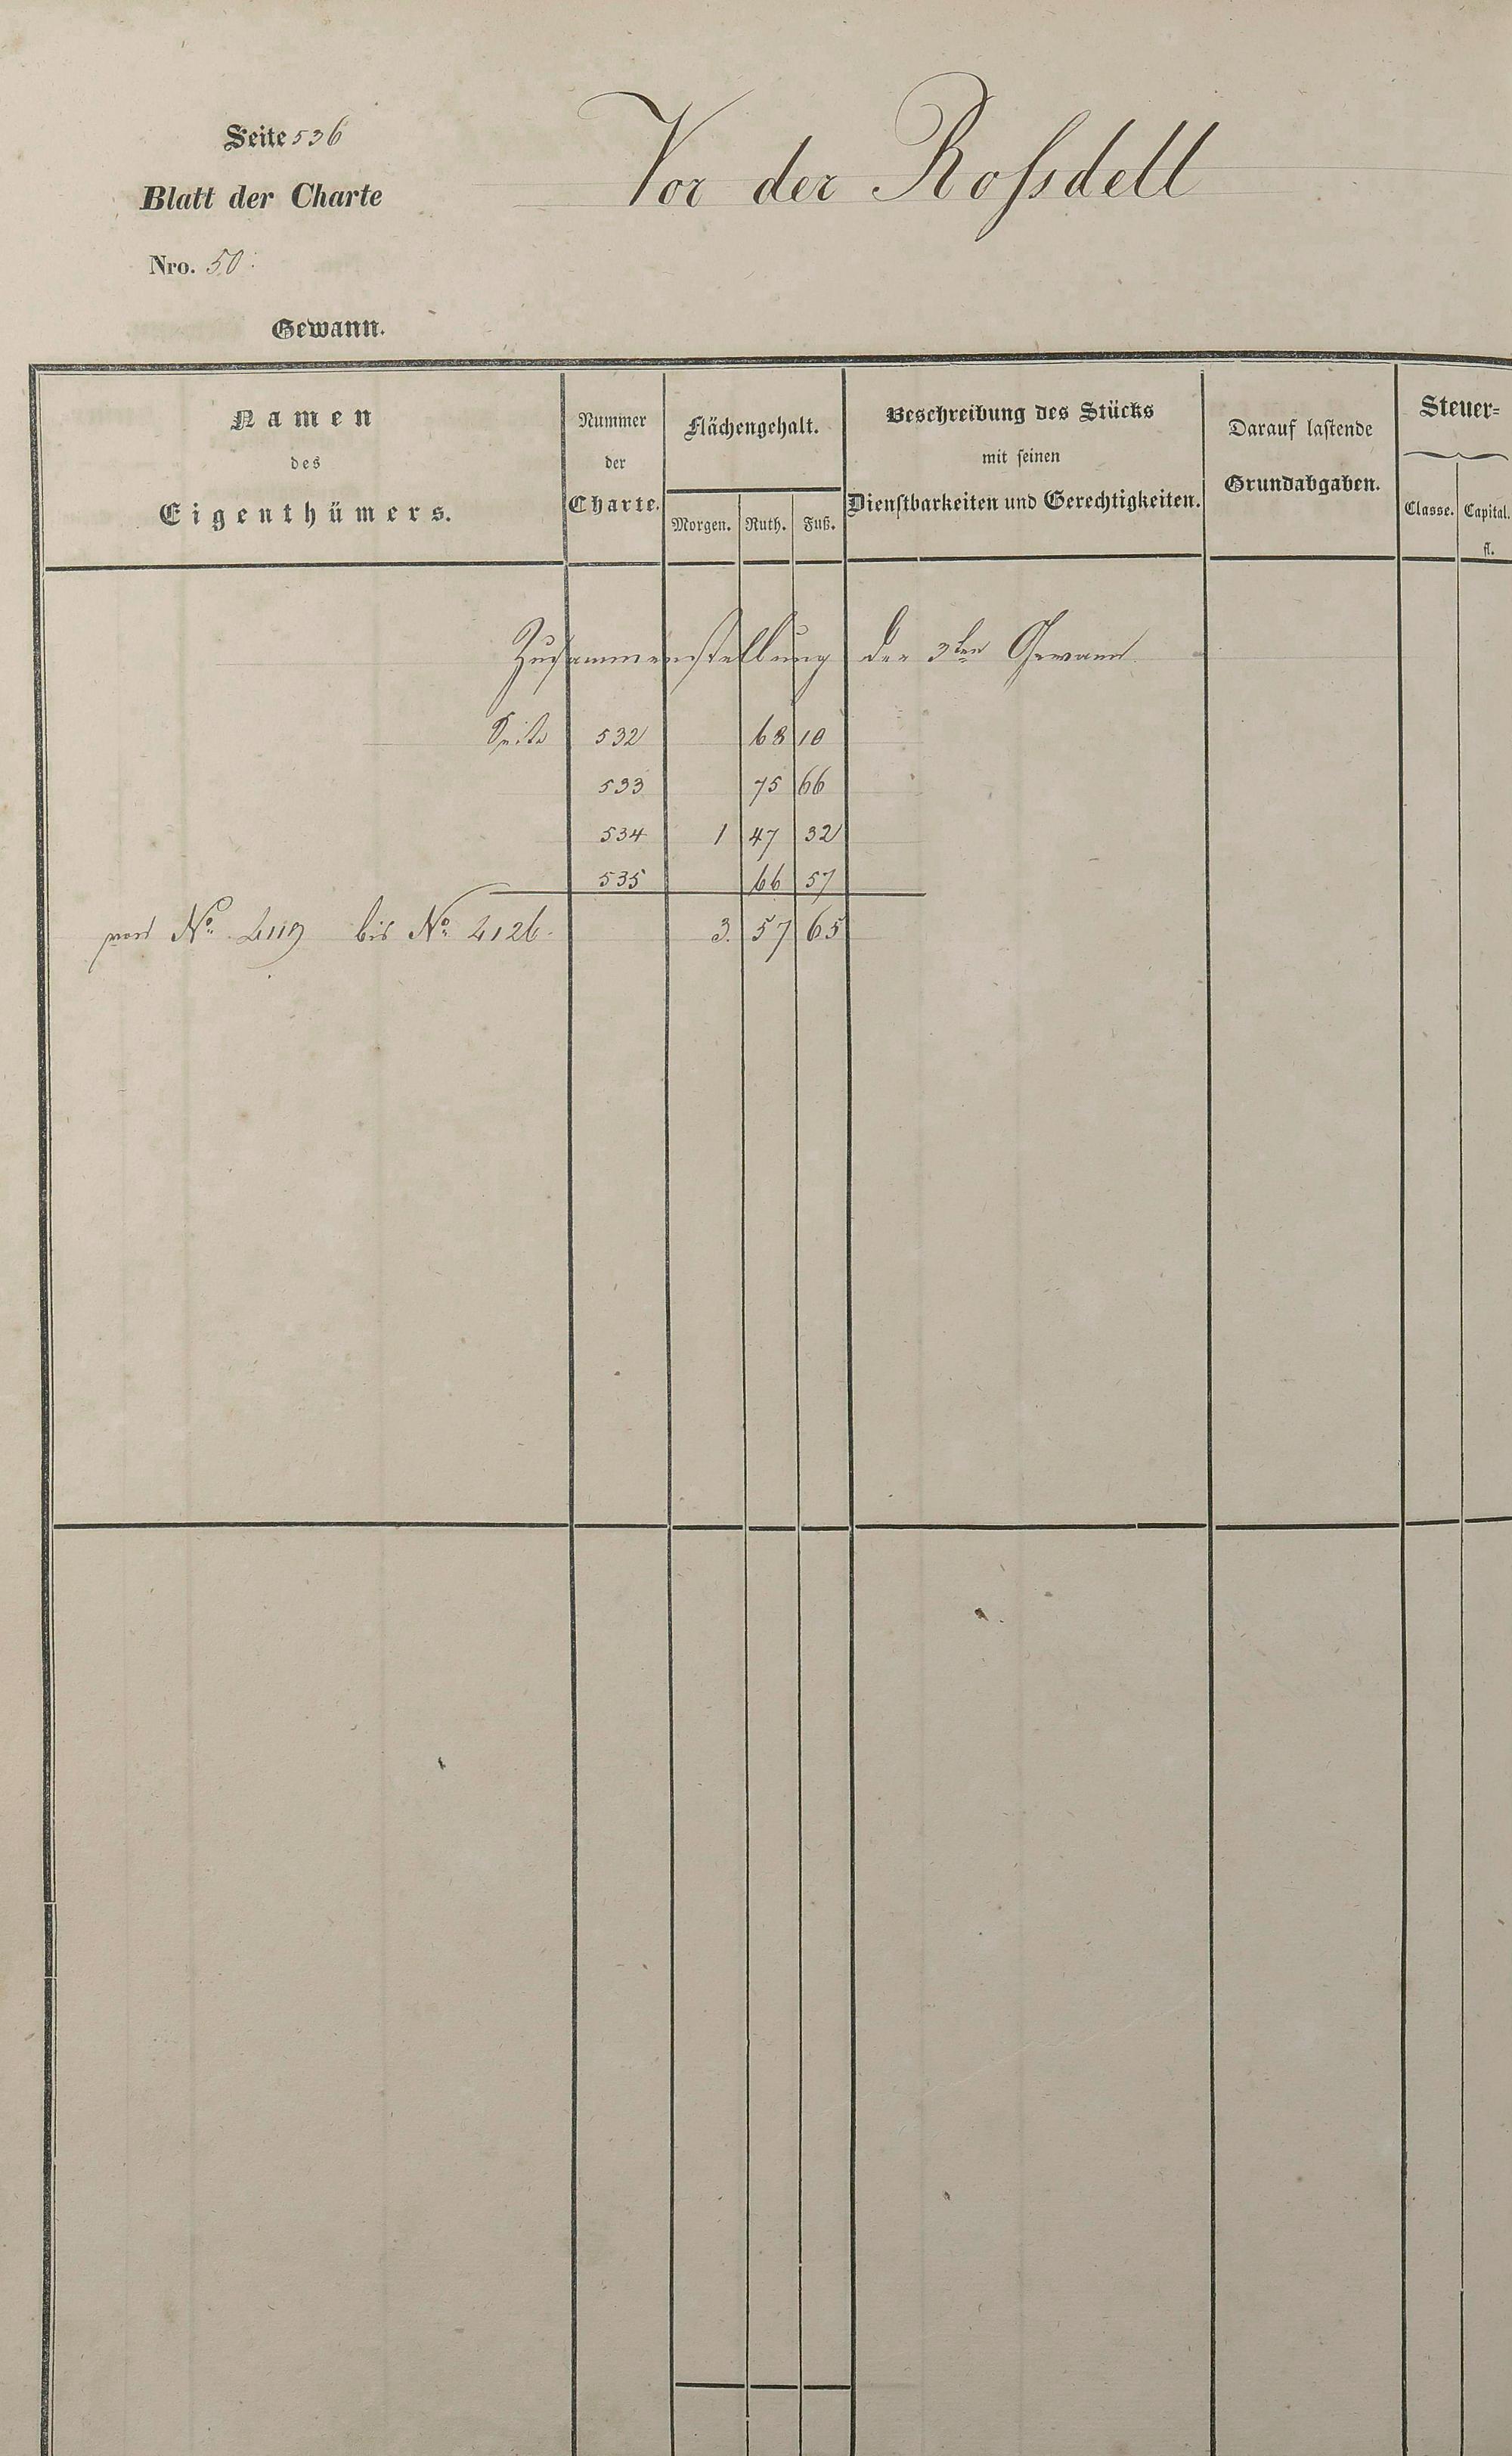 Seite 536
Vor der Roſsdell
Blatt der Charte
Nro. 50.
Gewann.
Namen
des
Eigenthümers.
Nummer
der
Charte.
Flächengehalt.
Morgen. Ruth. Fuß.
Beschreibung des Stücks
mit seinen
Dienstbarkeiten und Gerechtigkeiten.
Darauf lastende
Grundabgaben.
Steuer=
Classe. Capital.
fl.
Zusammenstellung der 3ten Gewann
Seite 532 68 10
533 75 66
534 1 47 32
535 66 57
von No. 4119 bis No. 4126. 3. 57 65